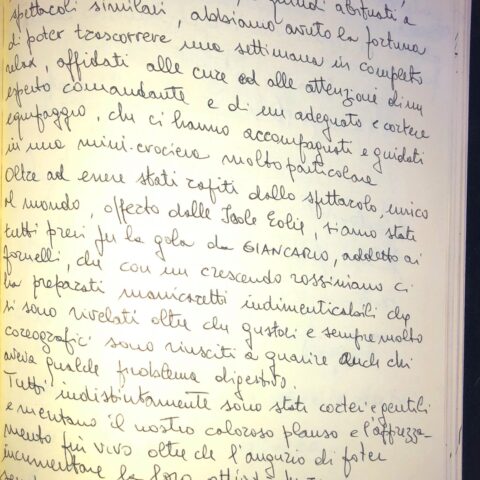 quindi abituati a
spettacoli similari, abbiamo avuto la fortuna
di poter trascorrere una settimana in completo
relax, affidati alle cure ed alle attenzioni di un
esperto comandante e di un adeguato e cortese
equipaggio, che ci hanno accompagnati e guidati
in una mini-crociera molto particolare
Oltre ad essere stati rapiti dallo spettacolo, unico
al mondo, offerto dalle Isole Eolie, siamo stati
tutti presi per la gola da GIANCARLO, addetto ai
fornelli, che con un crescendo rossiniano ci
ha preparati manicaretti indimenticabili che
si sono rivelati oltre che gustosi e sempre molto
coreografici sono riusciti a guarire anche chi
aveva qualche problema digestivo.
Tutti indistintamente sono stati cortesi e gentili
e meritano il nostro caloroso plauso e l'apprezza-
mento più vivo oltre che l'augurio di poter
incrementare la loro